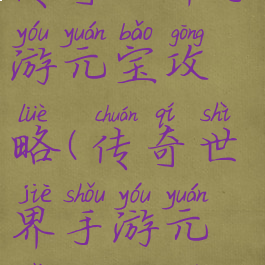 yóu yuán bǎo gōng
游元宝攻
lüè chuán qí shì
略(传奇世
jiè shǒu yóu yuán
界手游元